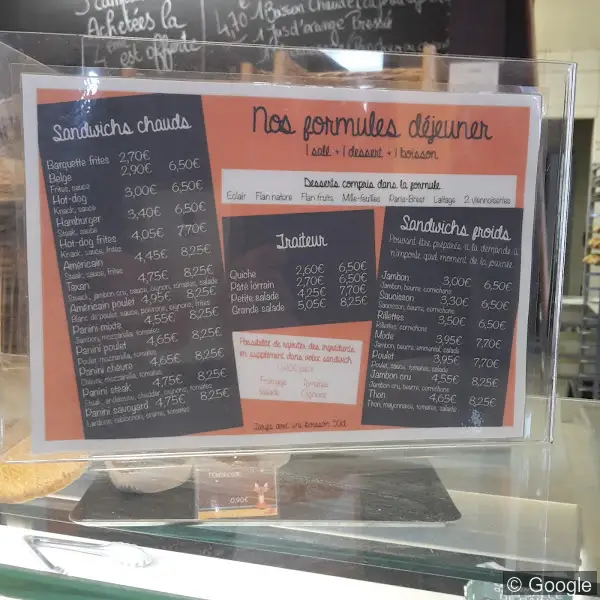 Achetées la
4ème est offerte
4,70
1 Jus d'orange Pressé
Sandwichs chauds
Barquette frites 2,70€
Belge 2,90€ 6,50€
Frites, sauce
Hot-dog 3,00€ 6,50€
Knack, sauce
Hamburger 3,40€ 6,50€
Steak, sauce
Hot-dog frites 4,05€ 7,70€
Knack, sauce, frites
Américain 4,45€ 8,25€
Steak, sauce, frites
Texan 4,75€ 8,25€
Steack, jambon cru, sauce, oignons, tomates, salade
Américain poulet 4,95€ 8,25€
Blanc de poulet, sauce, poivrons, oignons, frites
Panini mixte 4,55€ 8,25€
Jambon, mozzarella, tomates
Panini poulet 4,65€ 8,25€
Poulet, mozzarella, tomates
Panini chèvre 4,65€ 8,25€
Chèvre, mozzarella, tomates
Panini steak 4,75€ 8,25€
Steak, cheddar, oignons, tomates
Panini savoyard 4,75€ 8,25€
Lardons, reblochon, crème, tomates
Nos formules déjeuner
1 salé + 1 dessert + 1 boisson
Desserts compris dans la formule
Eclair Flan nature Flan fruits Mille-feuilles Paris-Brest Laitage 2 viennoiseries
Traiteur
Quiche 2,60€ 6,50€
Pâté lorrain 2,70€ 6,50€
Petite salade 4,25€ 7,70€
Grande salade 5,05€ 8,25€
Possibilité de rajouter des ingrédients
en supplément dans votre sandwich
Fromage Tomates
Salade Oignons
Tarifs avec une boisson 50cl
Sandwichs froids
Pouvant être préparés à la demande à
n'importe quel moment de la journée
Jambon 3,00€ 6,50€
Jambon, beurre, cornichons
Saucisson 3,30€ 6,50€
Saucisson, beurre, cornichons
Rillettes 3,50€ 6,50€
Rillettes, cornichons
Mode 3,95€ 7,70€
Jambon, beurre, emmental, salade
Poulet 3,95€ 7,70€
Poulet, sauce, tomates, salade
Jambon cru 4,55€ 8,25€
Jambon cru, beurre, cornichons
Thon 4,65€ 8,25€
Thon, mayonnaise, tomates, salade
0,90€
© Google